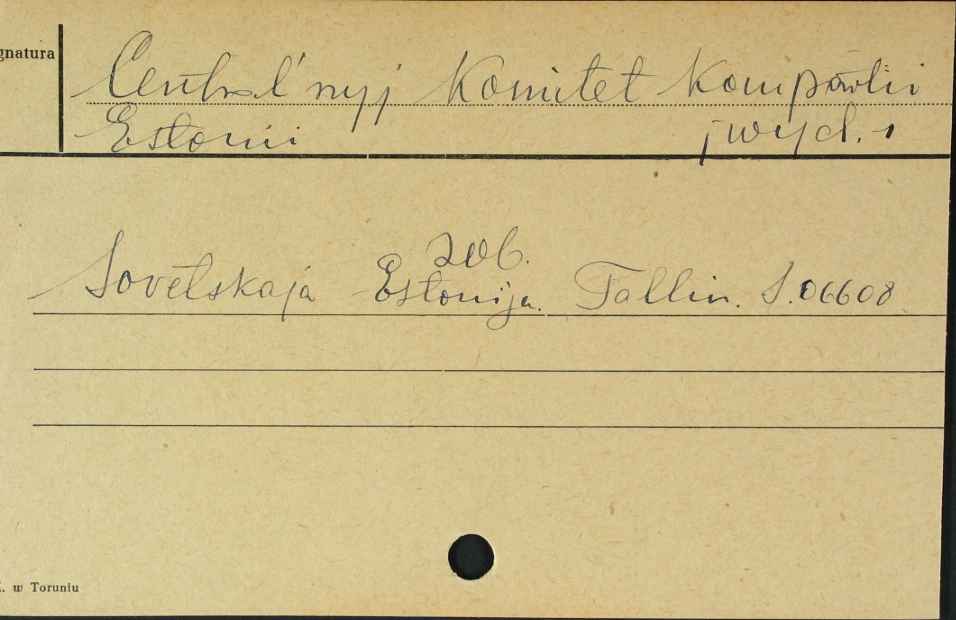 gnatura
Central'nyj Komitet Kompartii
Estonii /wyd./
zob.
Sovetskaja Estonija. Tallin. S.06608
. w Toruniu